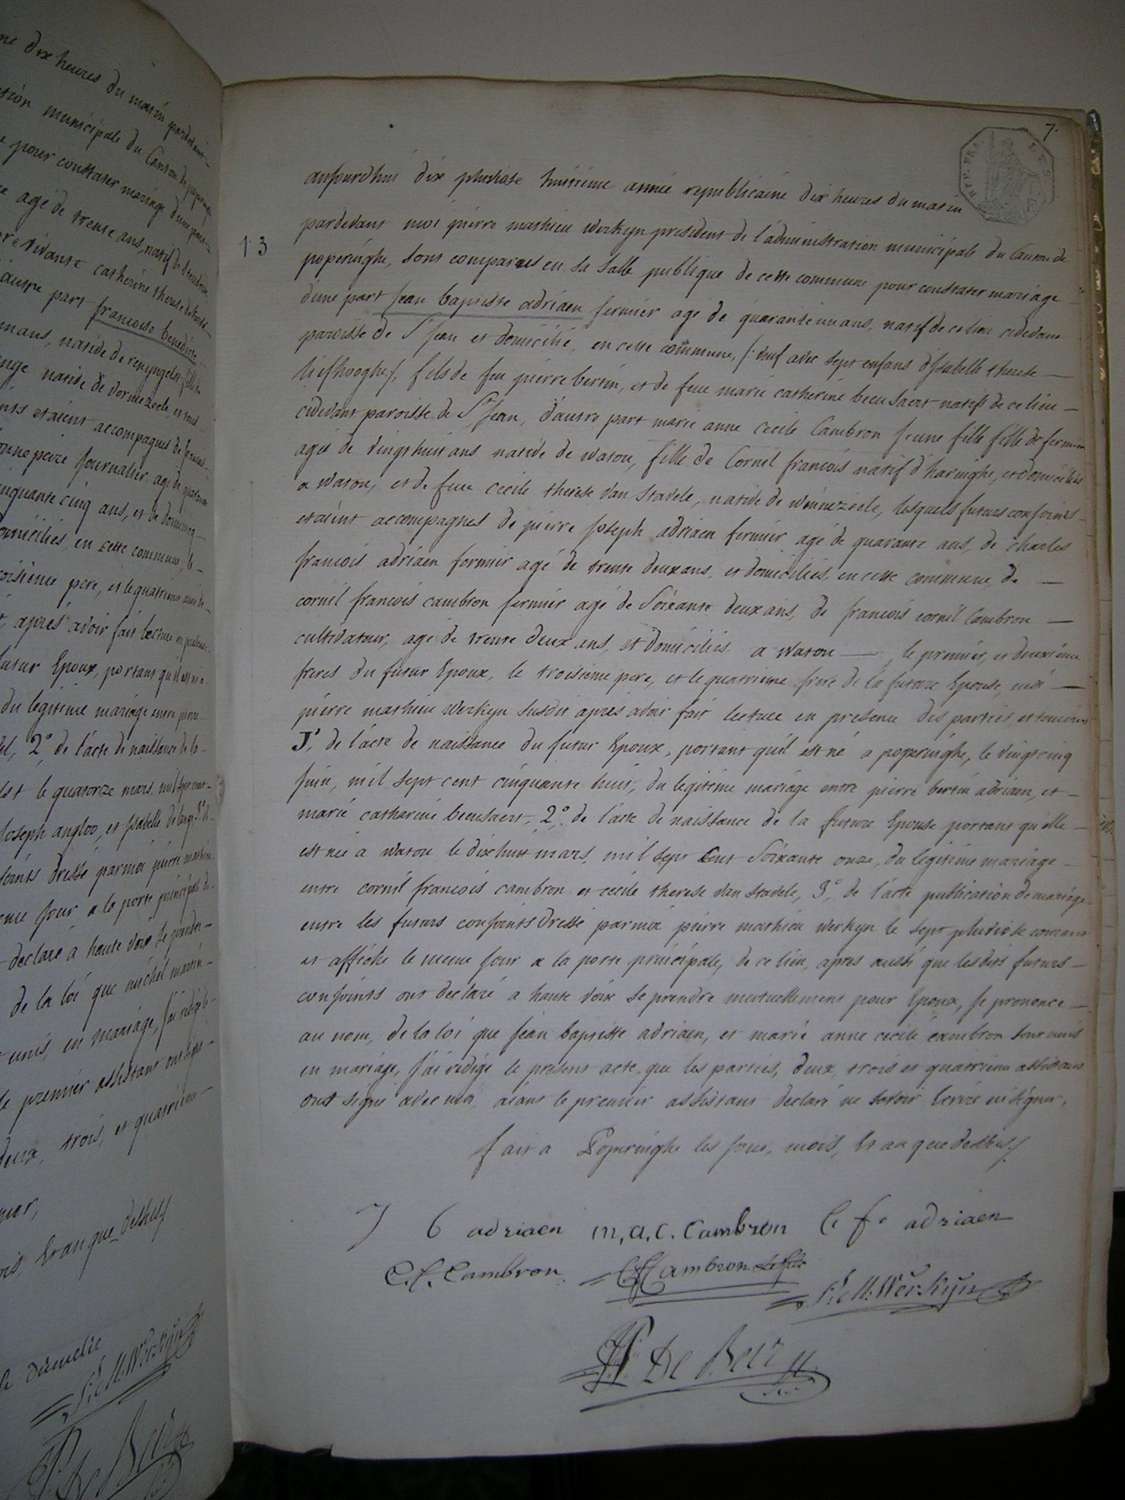 ne dix heures du matin pardevant
ation municipale du Canton de poperinghe
pour constater mariage d'une part
age de trente ans, natif de
catherine therese
autre part francoise benedicte
mans, native de renyngelst, fille
inge native de Vormezeele, et tous
nts etaient accompagnés de
journalier agé de quarante
nquante cinq ans, et de
domiciliés, en cette commune, le
troisieme pere, et le quatrieme
après avoir fait lecture en presence
futur Epoux, portant qu'il est né a
du légitime mariage entre pierre
2.° de l'acte de naissance de la
le quatorze mars, mil sept cent
Joseph angloo, et Isabelle
joints dressé parmoi pierre mathieu
eme jour a la porte principale de
declaré a haute voix se prendre
de la loi que michel martin
unis, en mariage, j'ai rédigé le
le premier assistant ont signé
deux, trois, et quatrieme
ois, Eran que dessus
7.
REP. FRA.
13
aujourdhui dix pluviose huitieme année republicaine dix heures du matin
pardevant moi pierre mathieu Werkyn president de l'administration municipale du Canton de
poperinghe, sont comparus en la salle publique de cette commune pour constater mariage
d'une part Jean baptiste adriaen fermier agé de quarante un ans, natif de ce lieu cidevant
paroisse de S.t Jean et domicilié, en cette commune, /: veuf avec sept enfans d'Isabelle therese —
liefhooghe /, fils de feu pierre bertin, et de feue marie catherine beeusaert natifs de ce lieu —
cidevant paroisse de S.t Jean, d'autre part marie anne cecile Cambron jeune fille fille de fermier
agée de vingthuit ans native de watou, fille de Cornil francois natif d'haringhe, et domicilié
a watou, et de feue cecile therese Van Stavele, native de winnezeele, lesquels futurs conjoints
etaient accompagnes de pierre joseph adriaen fermier agé de quarante ans, de charles
francois adriaen fermier agé de trente deux ans, et domiciliés, en cette commune, de —
cornil francois cambron fermier agé de Soixante deux ans, de francois cornil Cambron —
cultivateur, agé de trente deux ans, et domiciliés a watou —, le premier, et deuxieme
freres du futur Epoux, le troisieme pere, et le quatrieme frere de la future Epouse, moi —
pierre mathieu Werkyn susdit après avoir fait lecture en presence des parties, et temoins
1.° de l'acte de naissance du futur Epoux, portant qu'il est né a poperinghe, le vingt cinq
juin, mil sept cent cinquante huit, du legitime mariage entre pierre bertin adriaen, et —
marie catharine beeusaert, 2.° de l'acte de naissance de la future Epouse portant qu'elle —
est née a watou le dixhuit mars, mil sept cent Soixante onze, du légitime mariage —
entre cornil francois cambron et cecile therese Van Stavele, 3.° de l'acte publication de mariage
entre les futurs conjoints dressé parmoi pierre mathieu Werkyn le sept pluviose courant
et affiché le meme jour a la porte principale, de ce lieu, apres aussi que lesdits futurs —
conjoints ont declaré a haute voix se prendre mutuellement pour Epoux, je prononce —
au nom, de la loi que jean baptiste adriaen, et marie anne cecile cambron sont unis
en mariage, j'ai rédigé le présent acte, que les parties, deux, trois et quatrieme assistans
ont signé avec moi aiant le premier assistant declaré ne savoir Ecrire ni signer,
fait a Poperinghe les jour, mois, Eran que dessus /
J b adriaen m, a, c. Cambron C. f. adriaen
C. f. Cambron. Cambron Le fils
P. M. Werkyn
De Beir
P. M. Werkyn
De Beir